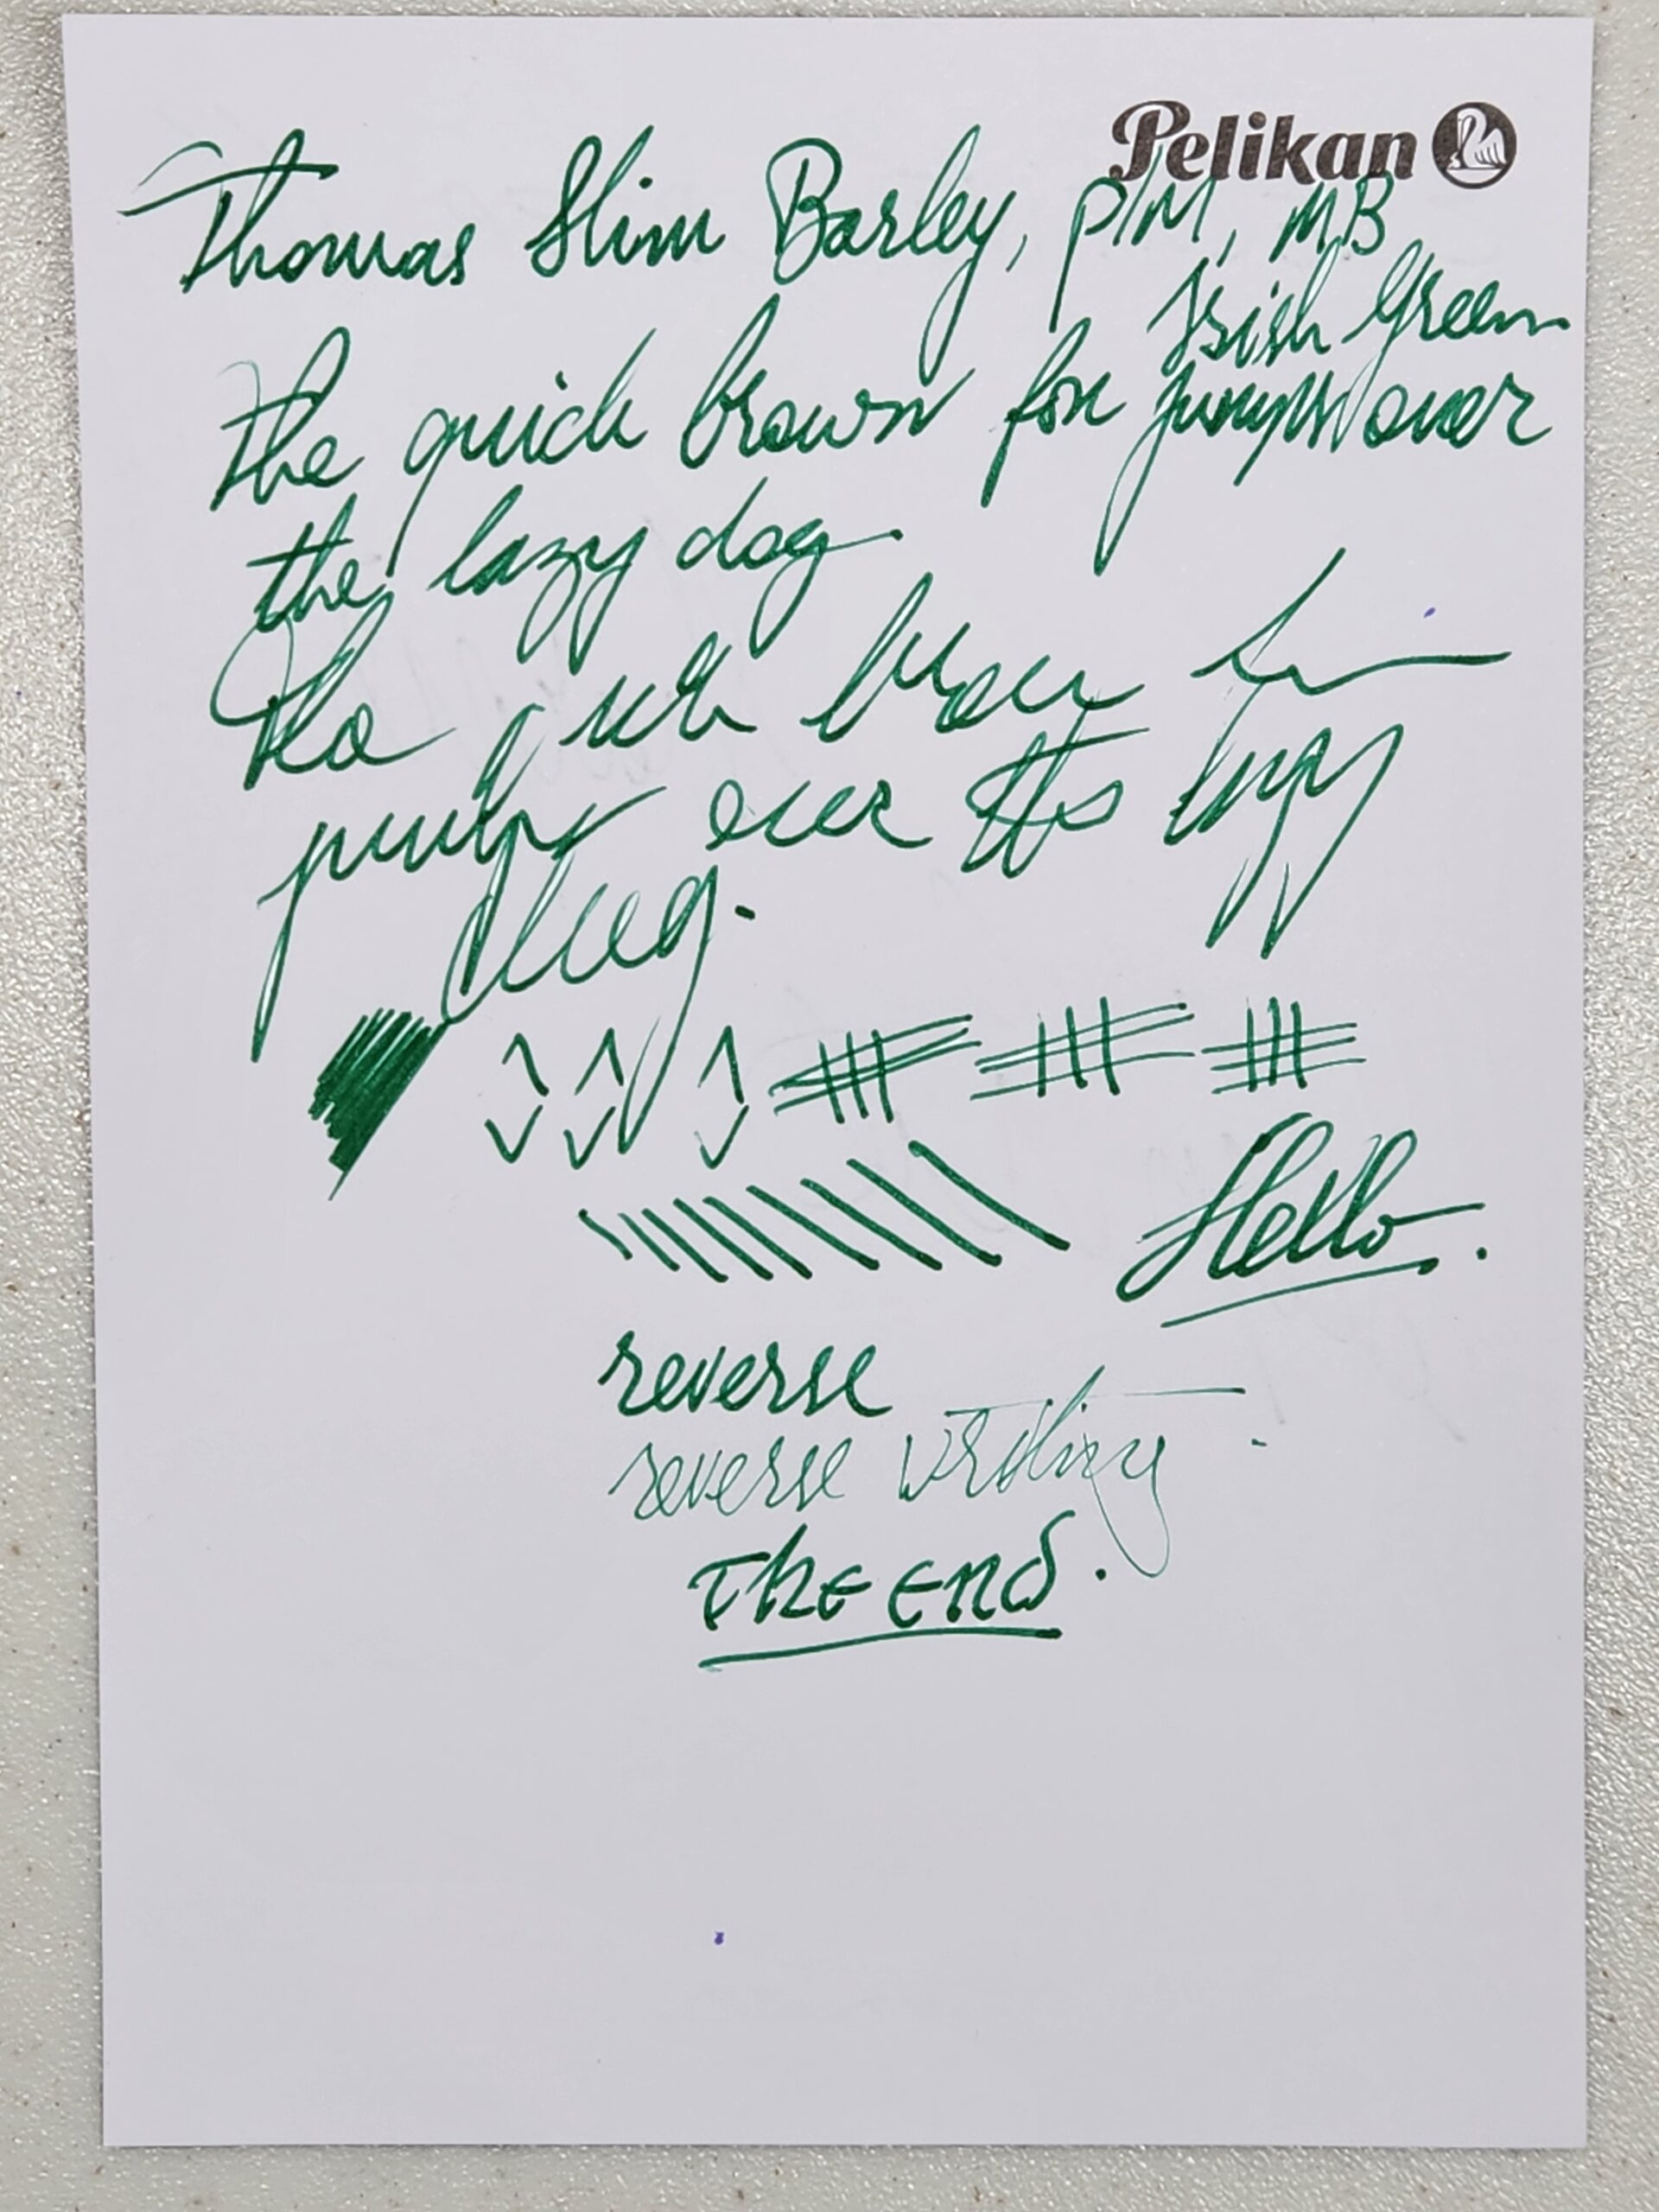 Pelikan
Thomas Slim Barley, P/M, MB
Irish Green
the quick brown fox jumps over
the lazy dog.
over the lazy
Hello.
reverse
reverse writing.
The End.